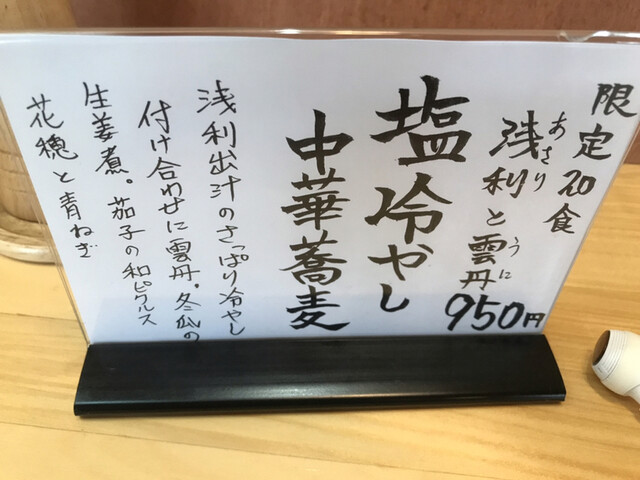 限定20食
浅利と雲丹
あさり
うに
950円
塩冷やし
中華蕎麦
浅利出汁のさっぱり冷やし
付け合わせに雲丹。冬瓜の
生姜煮。茄子の和ピクルス
花穂と青ねぎ